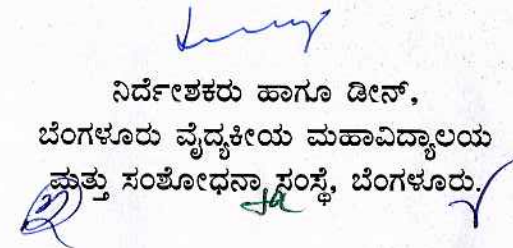 ನಿರ್ದೇಶಕರು ಹಾಗೂ ಡೀನ್,
ಬೆಂಗಳೂರು ವೈದ್ಯಕೀಯ ಮಹಾವಿದ್ಯಾಲಯ
ಮತ್ತು ಸಂಶೋಧನಾ ಸಂಸ್ಥೆ, ಬೆಂಗಳೂರು.